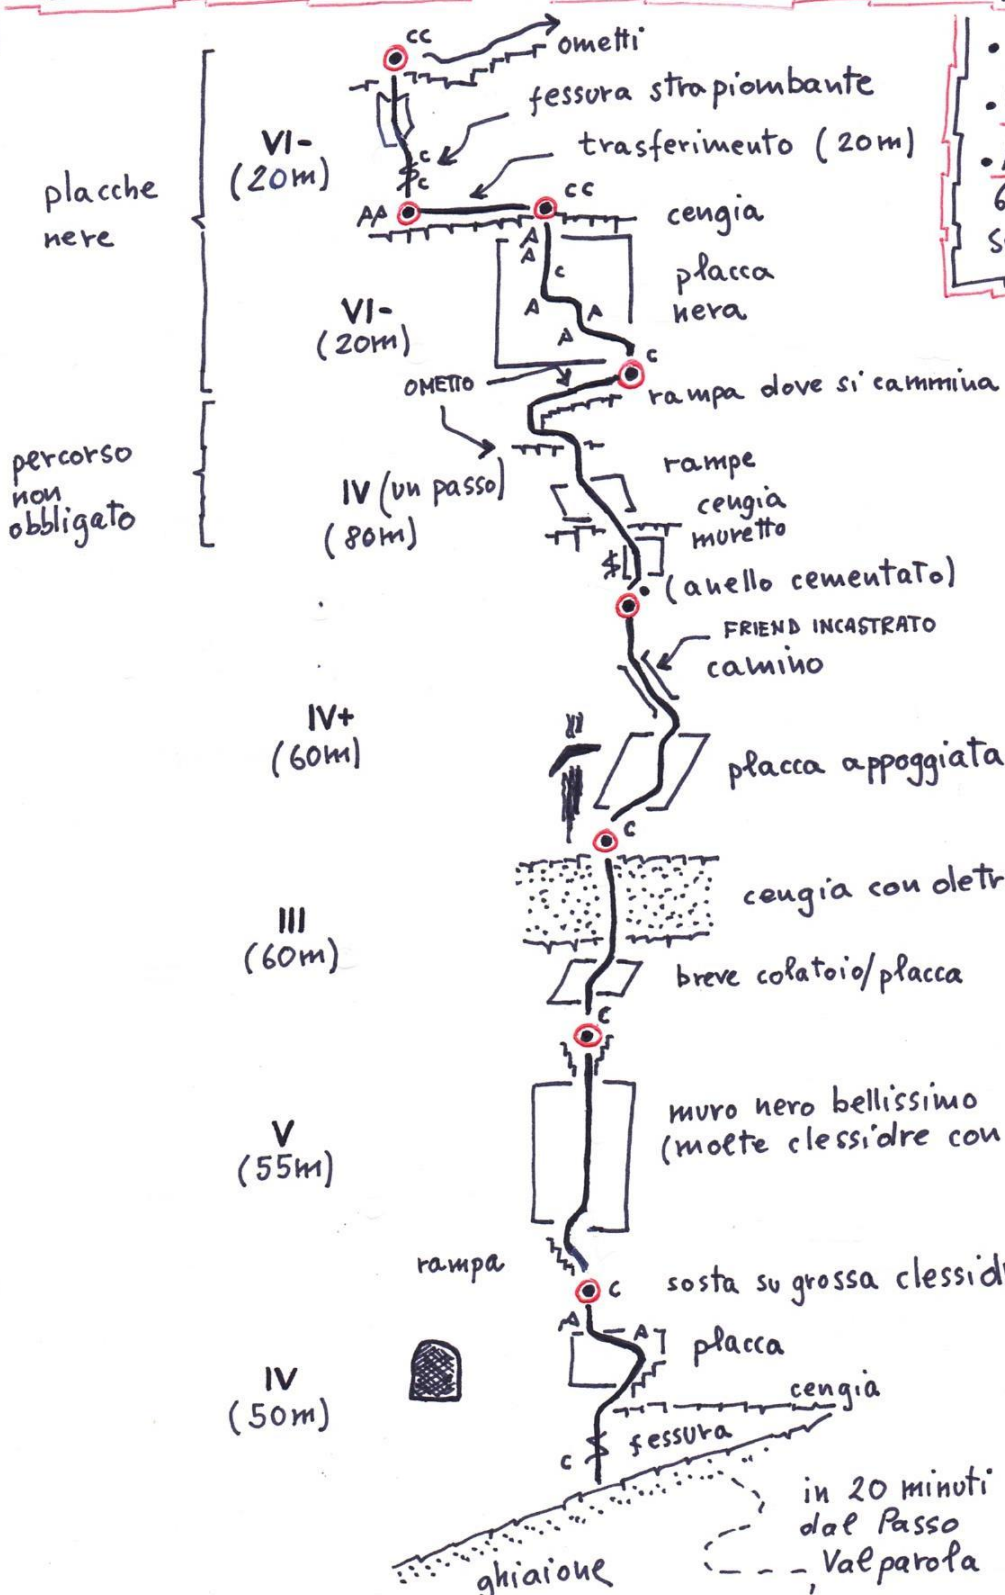 CC
ometti
fessura strapiombante
trasferimento (20m)
VI-
(20m)
placche
nere
C
C
AA
CC
cengia
A
A
C
placca
nera
A
A
A
VI-
(20m)
C
OMETTO
rampa dove si cammina
percorso
non
obbligato
IV (un passo)
(80m)
rampe
cengia
muretto
(anello cementato)
FRIEND INCASTRATO
camino
IV+
(60m)
placca appoggiata
C
cengia con
III
(60m)
breve colatoio/placca
C
V
(55m)
muro nero bellissimo
(molte clessidre con
rampa
C
sosta su grossa
A
A
placca
IV
(50m)
cengia
C
fessura
in 20 minuti
dal Passo
Valparola
ghiaione